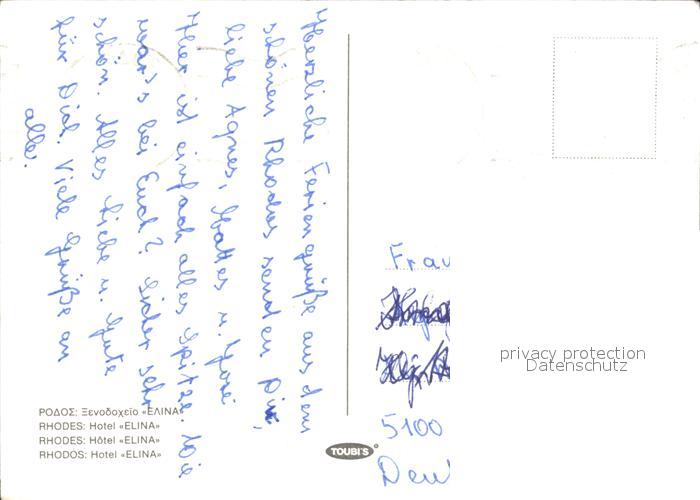 Herzliche Feriengrüße aus dem
schönen Rhodos senden Dir,
liebe Agnes, Mattes u.
Hier ist einfach alles Spitze. Wie
war's bei Euch? Sicher sehr
schön. Alles Liebe u. Gute
für Dich. Viele Grüße an
alle.
ΡΟΔΟΣ: Ξενοδοχείο «ΕΛΙΝΑ»
RHODES: Hotel «ELINA»
RHODES: Hôtel «ELINA»
RHODOS: Hotel «ELINA»
TOUBI'S
Frau
5100
privacy protection
Datenschutz